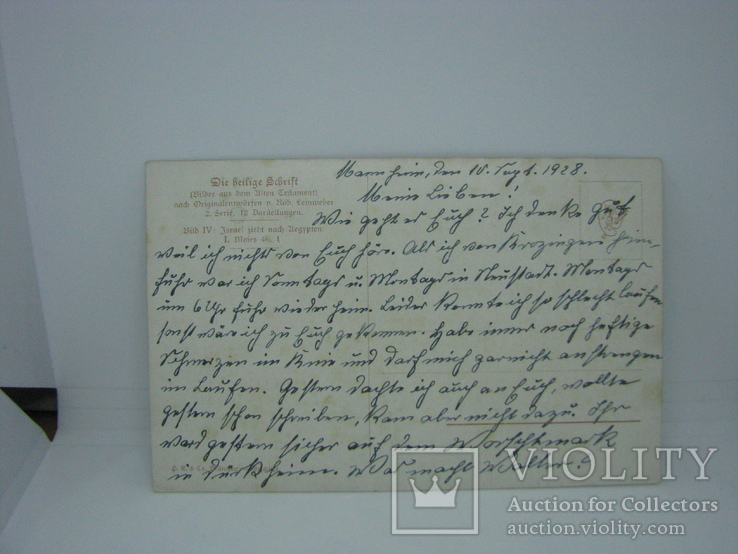 Die heilige Schrift
(Bilder aus dem Alten Testament)
nach Originalentwürfen v. Rob. Leinweber
2. Serie, 12 Darstellungen.
Bild IV: Israel zieht nach Aegypten
I. Moses 46, 1
Mannheim, den 10. Sept. 1928.
Meine Lieben!
Wie geht es Euch? Ich denke gut
weil ich nichts von Euch höre. Als ich von heim-
fuhr war ich Sonntags u. Montags in Neustadt. Montags
um 6 Uhr fuhr wieder heim. Leider konnte ich so schlecht laufen
sonst wär ich zu Euch gekommen. Habe immer noch heftige
Schmerzen im Knie und darf mich garnicht anstrengen
im Laufen. Gestern dachte ich auch an Euch, wollte
gestern schon schreiben, kam aber nicht dazu. Ihr
ward gestern sicher auf dem Worschtmark
in Dürkheim. Was macht Walter?
VIOLITY
Auction for Collectors
auction.violity.com